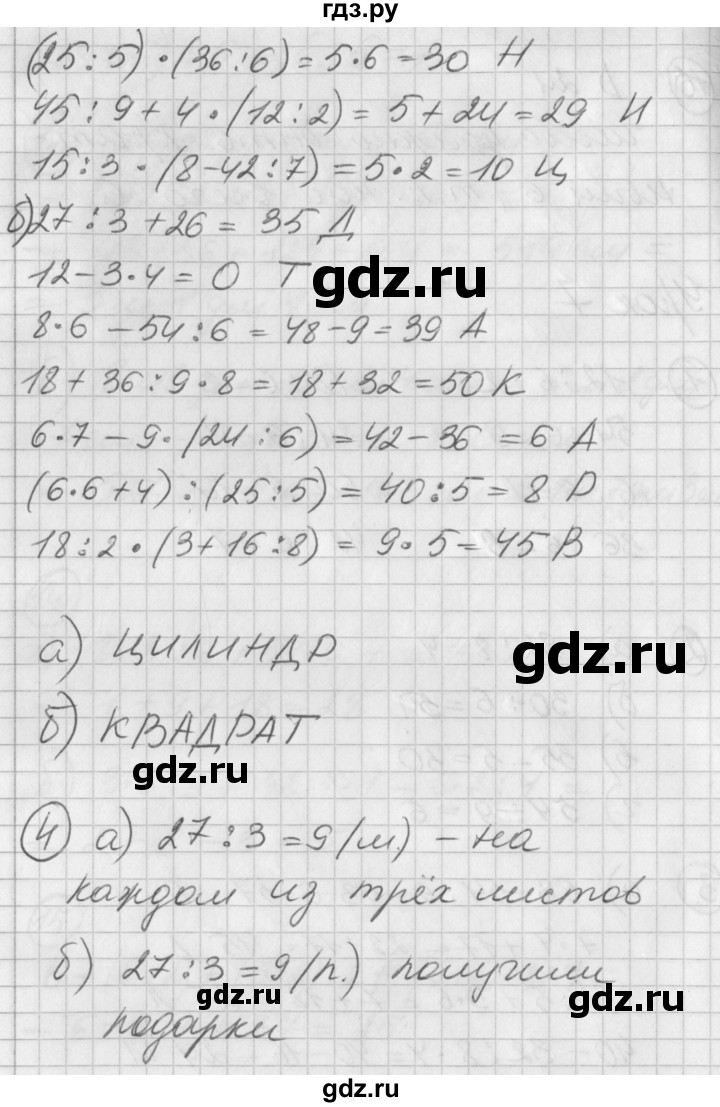 гдз.ру
(25:5)·(36:6)=5·6=30 Н
45:9+4·(12:2)=5+24=29 И
15:3·(8-42:7)=5·2=10 Ц
б)27:3+26=35 Д
12-3·4=0 Т
gdz.ru
8·6-54:6=48-9=39 А
18+36:9·8=18+32=50 К
6·7-9·(24:6)=42-36=6 А
(6·6+4):(25:5)=40:5=8 Р
18:2·(3+16:8)=9·5=45 В
а) ЦИЛИНДР
gdz.ru
б) КВАДРАТ
gdz.ru
4 а) 27:3=9(м.) - на
каждом из трёх листов
б) 27:3=9(п.) получили
gdz.ru
gdz.ru
подарки
gdz.ru